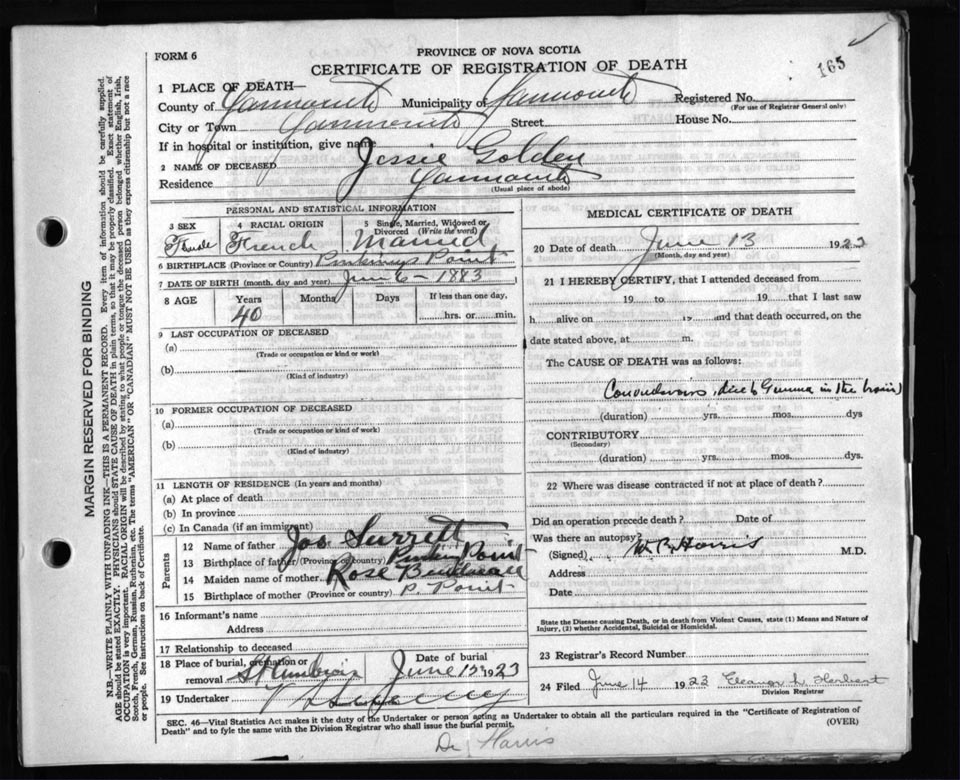 165
FORM 6
PROVINCE OF NOVA SCOTIA
CERTIFICATE OF REGISTRATION OF DEATH
1 PLACE OF DEATH—
County of Yarmouth Municipality of Yarmouth Registered No.
(For use of Registrar General only)
City or Town Yarmouth Street House No.
If in hospital or institution, give name
2 NAME OF DECEASED Jessie Golden
Residence Yarmouth
(Usual place of abode)
MARGIN RESERVED FOR BINDING
N.B.—WRITE PLAINLY WITH UNFADING INK—THIS IS A PERMANENT RECORD. Every item of information should be carefully supplied.
AGE should be stated EXACTLY. PHYSICIANS should STATE CAUSE OF DEATH in plain terms, so that it may be properly classified. Exact statement of
OCCUPATION is very important. RACIAL ORIGIN will be described by stating to what people or tongue the deceased person belonged whether English, Irish,
Scotch, French, German, Russian, Ruthenian, etc. The terms "AMERICAN" OR "CANADIAN" MUST NOT BE USED as they express citizenship but not a race
or people. See instructions on back of Certificate.
PERSONAL AND STATISTICAL INFORMATION
3 SEX
4 RACIAL ORIGIN
5 Single, Married, Widowed or
Divorced (Write the word)
Female French Married
6 BIRTHPLACE (Province or Country) Point
7 DATE OF BIRTH (month, day and year) 6 - 1883
8 AGE Years Months Days If less than one day,
40 hrs. or min.
9 LAST OCCUPATION OF DECEASED
(a)
(Trade or occupation or kind or work)
(b)
(Kind of industry)
10 FORMER OCCUPATION OF DECEASED
(a)
(Trade or occupation or kind of work)
(b)
(Kind of industry)
11 LENGTH OF RESIDENCE (In years and months)
(a) At place of death
(b) In province
(c) In Canada (if an immigrant)
Parents
12 Name of father Surrett
13 Birthplace of father (Province or country) Point
14 Maiden name of mother Rose
15 Birthplace of mother (Province or country) P. Point
16 Informant's name
Address
17 Relationship to deceased
18 Place of burial, cremation or removal St Ambrois
Date of burial June 1923
19 Undertaker
MEDICAL CERTIFICATE OF DEATH
20 Date of death June 13 1923
(Month, day and year)
21 I HEREBY CERTIFY, that I attended deceased from
19 to 19 that I last saw
h alive on 19 and that death occurred, on the
date stated above, at m.
The CAUSE OF DEATH was as follows:
due to Gumma in the brain
(duration) yrs. mos. dys
CONTRIBUTORY
(Secondary)
(duration) yrs. mos. dys.
22 Where was disease contracted if not at place of death?
Did an operation precede death? Date of
Was there an autopsy?
(Signed) Harris M.D.
Address
Date
State the Disease causing Death, or in death from Violent Causes, state (1) Means and Nature of
Injury, (2) whether Accidental, Suicidal or Homicidal.
23 Registrar's Record Number
24 Filed June 14 1923 Eleanor L. Herbert
Division Registrar
SEC. 46—Vital Statistics Act makes it the duty of the Undertaker or person acting as Undertaker to obtain all the particulars required in the "Certificate of Registration of
Death" and to fyle the same with the Division Registrar who shall issue the burial permit.
(OVER)
Dr Harris